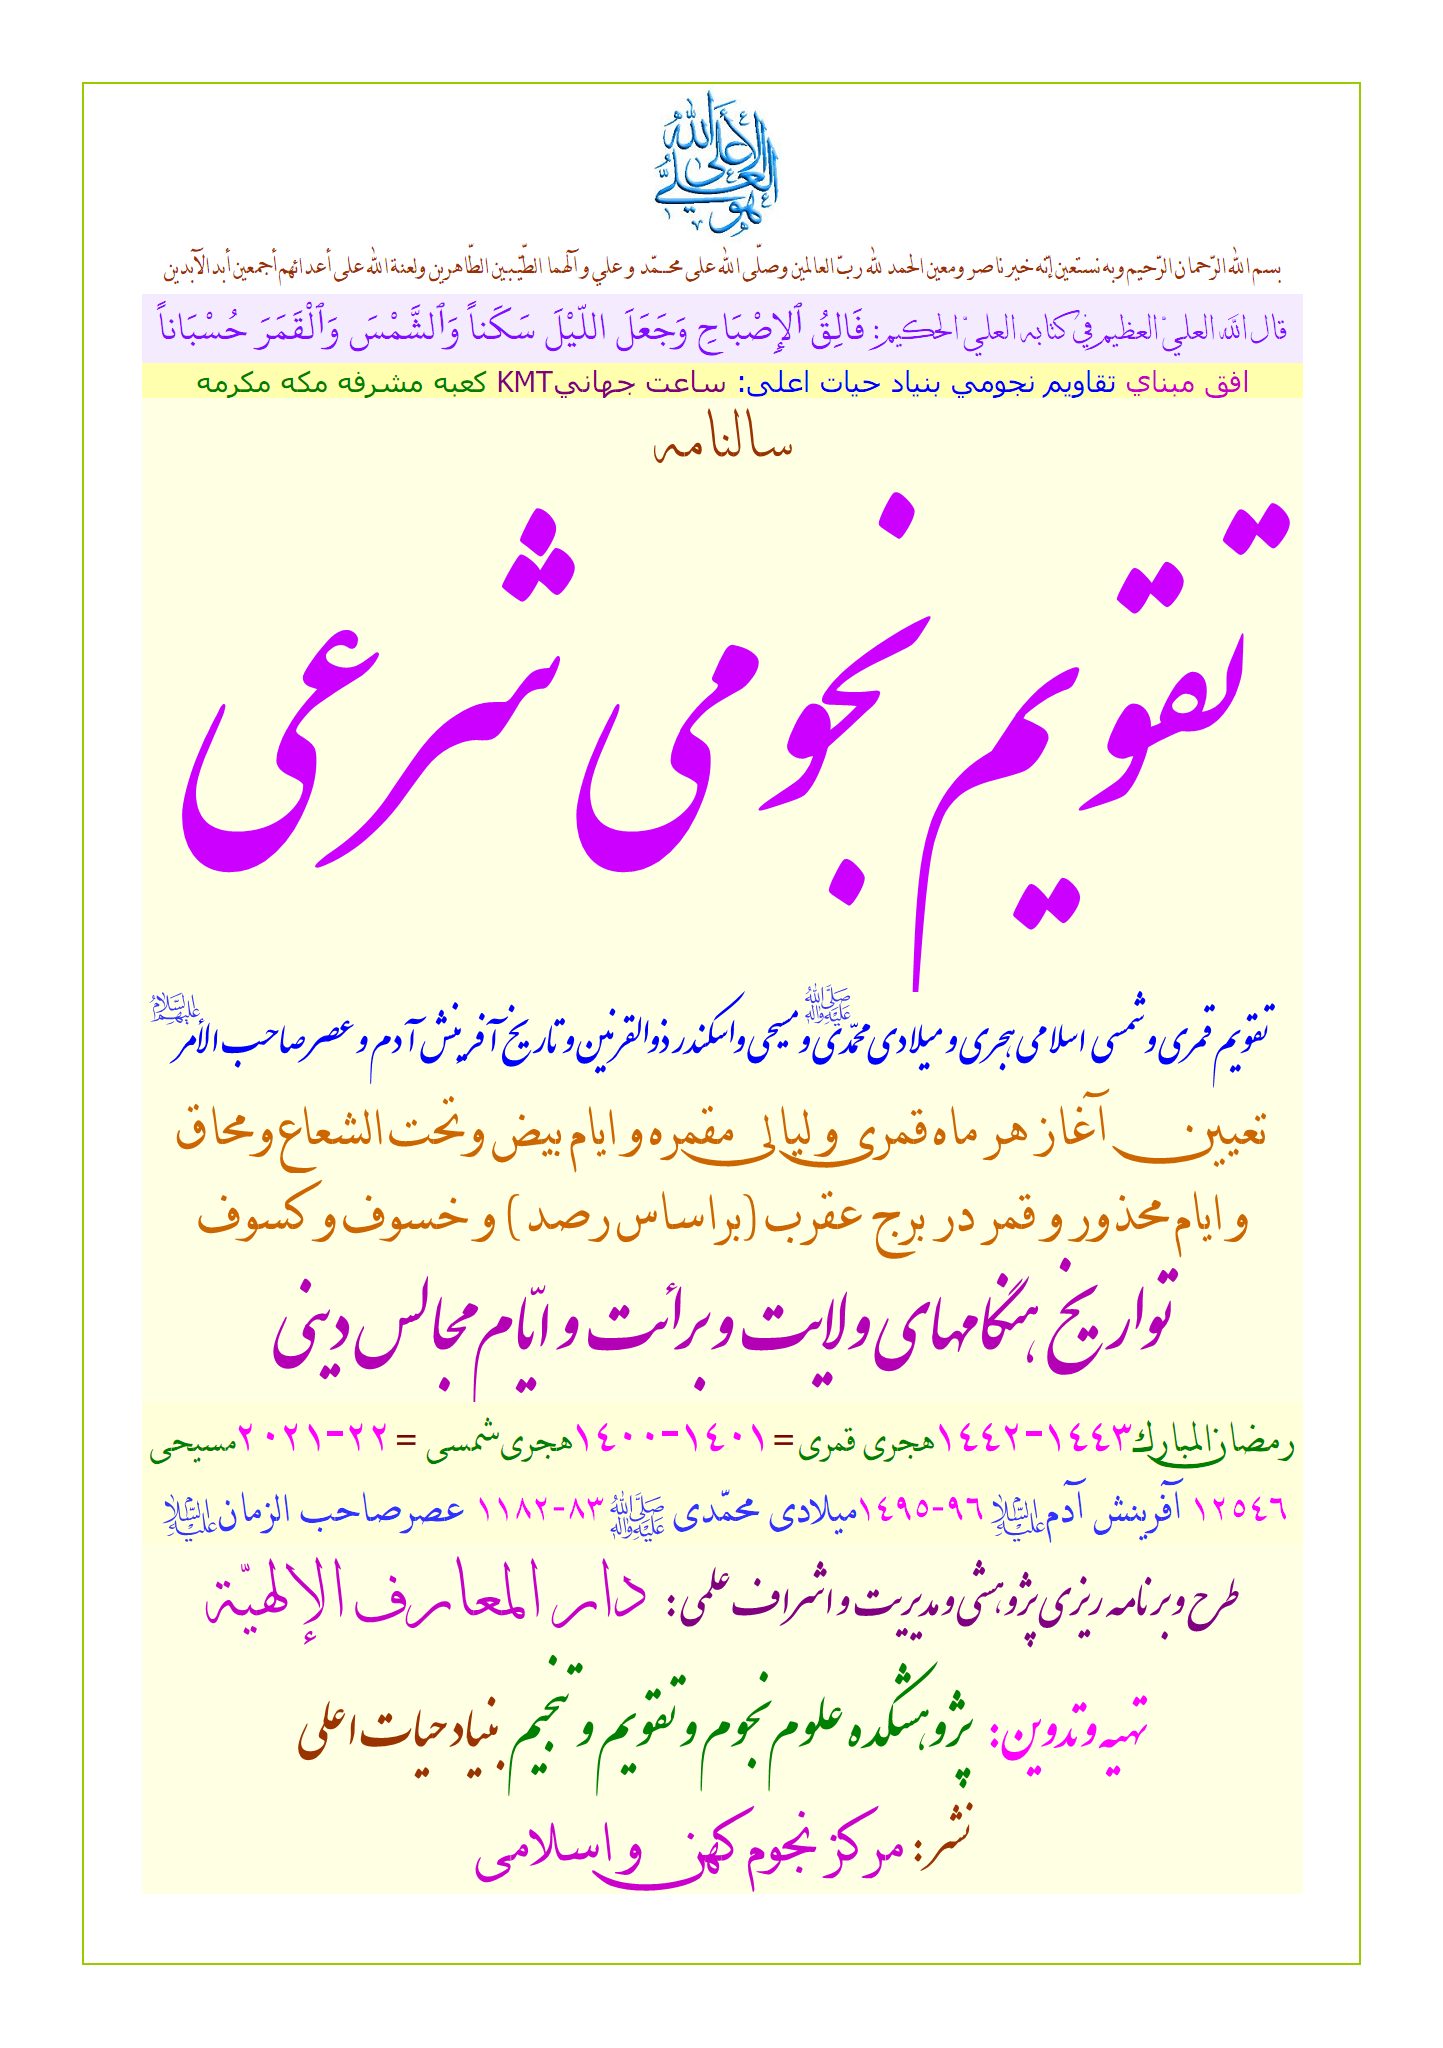 هو العلي الأعلى الله
بسم الله الرّحمان الرّحيم وبه نستعين إنّه خير ناصر ومعين الحمد لله ربّ العالمين وصلّى الله على محـمّد و علي و آلهما الطيّبين الطّاهرين ولعنة الله على أعدائهم أجمعين أبد الآبدين
قال الله العليّ العظيم في كتابه العليّ الحكيم: فَالِقُ ٱلإِصْبَاحِ وَجَعَلَ اللّيْلَ سَكَناً وَٱلشَّمْسَ وَٱلْقَمَرَ حُسْبَاناً
افق مبناي تقاويم نجومي بنياد حيات اعلى: ساعت جهانيKMT كعبه مشرفه مكه مكرمه
سالنامه
تقویم نجومی شرعی
تقویم قمری و شمسی اسلامی هجری و میلادی محمّدی ﷺ و مسیحی و اسکندر ذوالقرنین و تاریخ آفرینش آدم و عصر صاحب الأمر علیهم السلام
تعیین آغاز هر ماه قمری و لیالی مقمره و ایام بیض و تحت الشعاع و محاق
و ایام محذور و قمر در برج عقرب (براساس رصد) و خسوف و کسوف
تواریخ هنگامهای ولایت و برأئت و ایّام مجالس دینی
رمضان المبارك١٤٤٣-١٤٤٢هجری قمری=١٤٠١-١٤٠٠هجری شمسی =٢٢-٢٠٢١مسیحی
١٢٥٤٦ آفرینش آدم علیه السلام ٩٦-١٤٩٥میلادی محمّدی ﷺ ٨٣-١١٨٢ عصر صاحب الزمان علیه السلام
طرح و برنامه ریزی پژوهشی و مدیریت و اشراف علمی: دار المعارف الإلهیّة
تهیه و تدوین: پژوهشکده علوم نجوم و تقویم و تنجیم بنیاد حیات اعلی
نشر: مرکز نجوم کهن و اسلامی